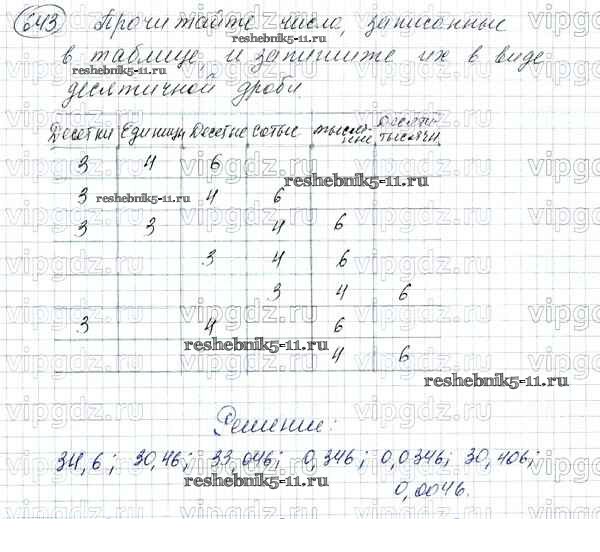 643 Прочитайте числа, записанные
в таблице, и запишите их в виде
десятичной дроби.
Десятки Единицы Десятые сотые тысячные Десятитысячн
3 4 6
3 4 6
3 3 4 6
3 4 6
3 4 6
3 4 6
4 6
Решение:
34,6; 30,46; 33,046; 0,346; 0,0346; 30,406;
0,0046.
reshebnik5-11.ru
reshebnik5-11.ru
reshebnik5-11.ru
reshebnik5-11.ru
reshebnik5-11.ru
reshebnik5-11.ru
reshebnik5-11.ru
vipgdz.ru